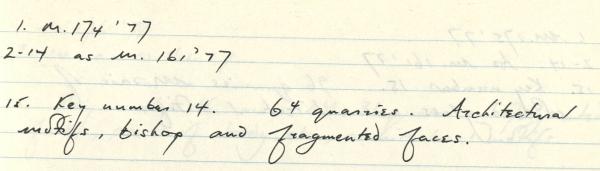 1. M.174 '77
2-14 as M. 161, '77
15. Key number 14. 64 quarries. Architectural
motifs, bishop and fragmented faces.